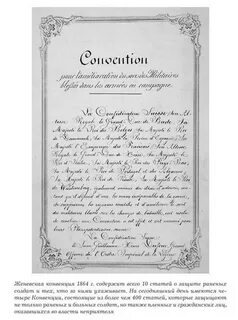 Convention
pour l'amélioration du sort des Militaires
blessés dans les armées en campagne.
La Confédération Suisse, Son Altesse
Royale le Grand Duc de Bade, Sa
Majesté le Roi des Belges, Sa Majesté le Roi
de Danemark, Sa Majesté la Reine d'Espagne, Sa Majesté
l'Empereur des Français, Son Altesse
Royale le Grand Duc de Hesse, Sa Majesté le Roi
d'Italie, Sa Majesté le Roi des Pays-Bas,
Sa Majesté le Roi de Portugal et des Algarves,
Sa Majesté le Roi de Prusse, Sa Majesté le Roi de
Wurtemberg, également animés du désir d'adoucir,
La Confédération Suisse:
Le Sieur Guillaume Henri Dufour, Grand
Officier de l'Ordre Impérial de la Légion
Женевская конвенция 1864 г. содержит всего 10 статей о защите раненых
солдат и тех, кто за ними ухаживает. На сегодняшний день имеются че-
тыре Конвенции, состоящие из более чем 400 статей, которые защищают
не только раненых и больных солдат, но также пленных и гражданских лиц,
оказавшихся во власти неприятеля